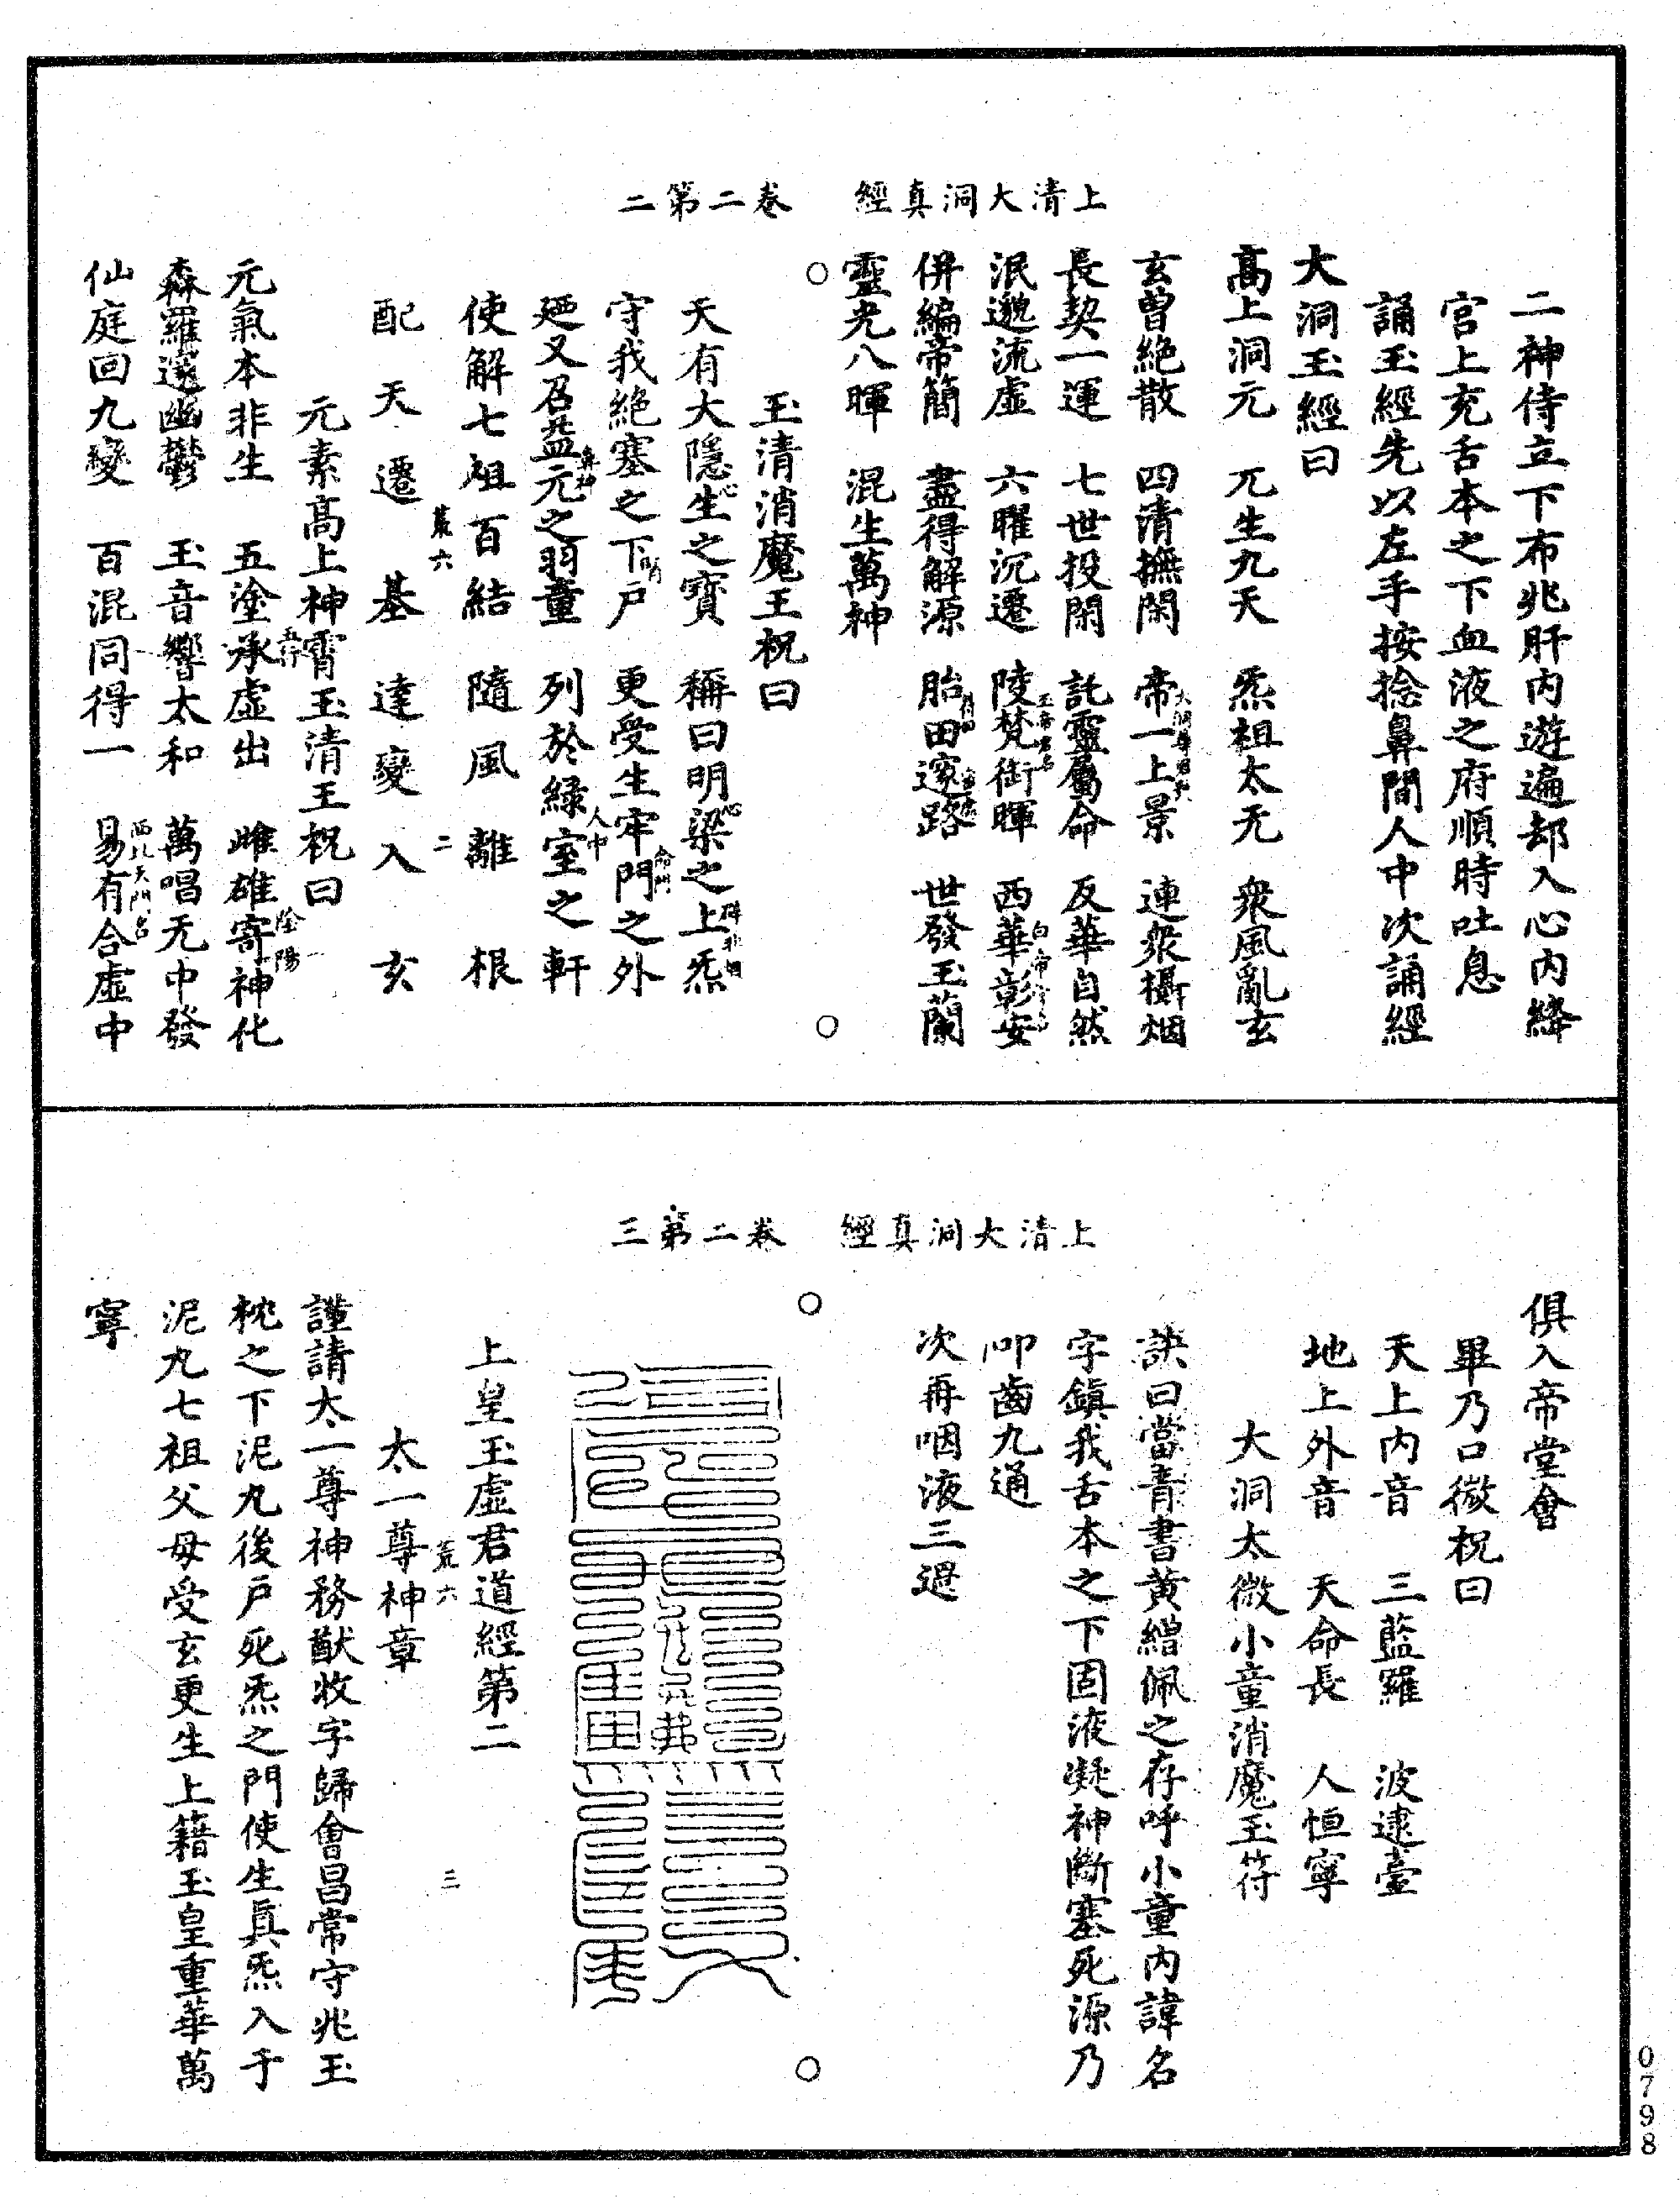 上清大洞真經　卷二第二
二神侍立下布兆肝內遊遍却入心內絳
宮上充舌本之下血液之府順時吐息
誦玉經先以左手按捻鼻間人中次誦經
大洞玉經曰
高上洞元　兀生九天　炁祖太无　衆風亂玄
玄曾絶散　四清撫閑　帝一上景　連衆攝烟
長契一運　七世投閑　託靈屬命　反華自然
泯邈流虛　六曜沉遷　陵梵街暉　西華彰安
併編帝簡　盡得解源　胎田邃路　世發玉蘭
靈光八暉　混生萬神
玉清消魔王祝曰
天有大隱生心之寶　稱曰明梁心之上炁
守我絶塞之下戶　更受生牢門命門之外
廼又召益元鼻神之羽童　列於綠室人中之軒
使解七祖百結　隨風離根
配天遷基　達變入玄
荒六　二
元素高上神霄玉清王祝曰
元氣本非生　五塗五行承虛出　雌雄陰陽寄神化
森羅邃幽鬱　玉音響太和　萬唱无中發
仙庭回九變　百混同得一　易有西北天門名合虛中
上清大洞真經　卷二第三
俱入帝堂會
畢乃口微祝曰
天上內音　三藍羅　波逮臺
地上外音　天命長　人恒寧
大洞太微小童消魔玉符
訣曰當青書黃繒佩之存呼小童內諱名
字鎮我舌本之下固液凝神斷塞死源乃
叩齒九通
次再咽液三過
上皇玉虛君道經第二
荒六　三
太一尊神章
謹請太一尊神務猷收字歸會昌常守兆玉
枕之下泥丸後戶死炁之門使生真炁入于
泥丸七祖父母受玄更生上籍玉皇重華萬
寧
0798